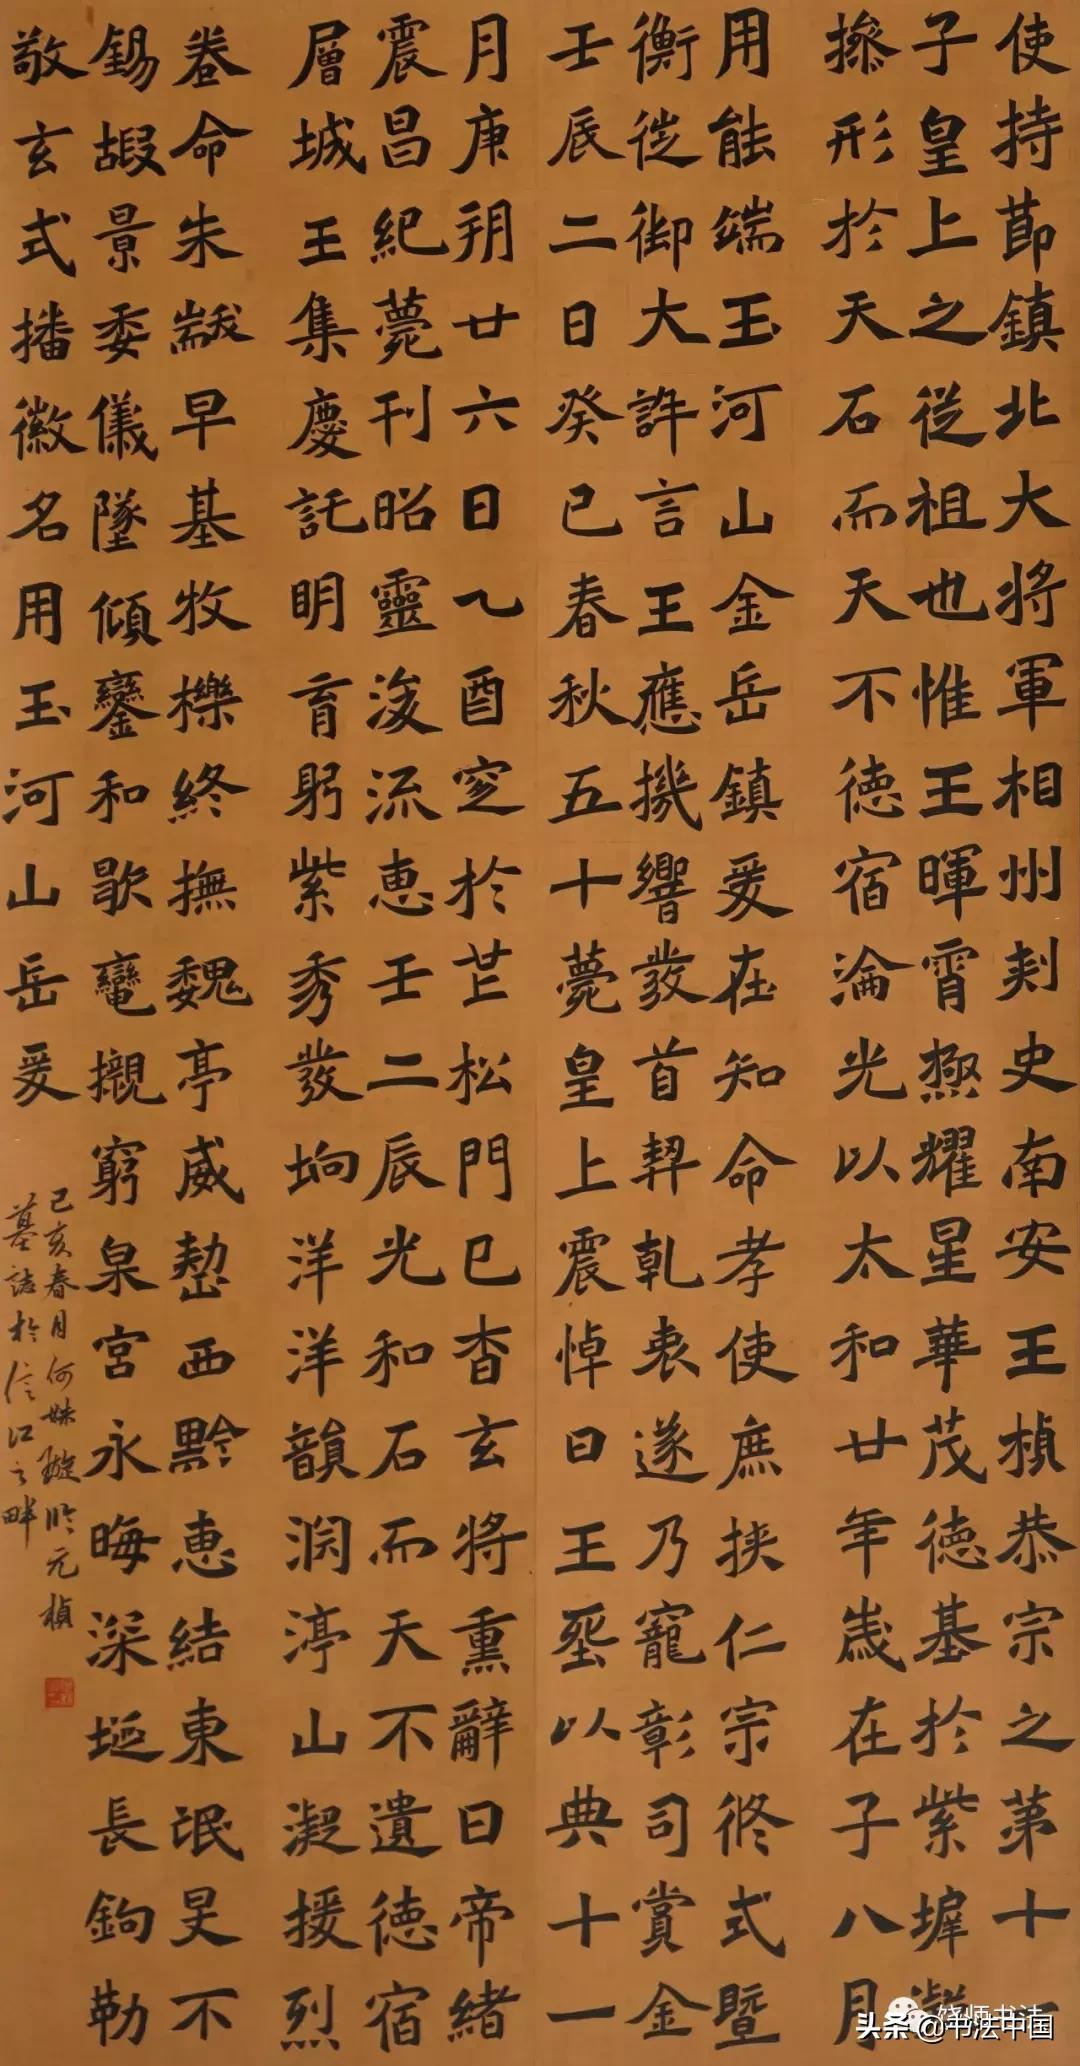 使持節鎮北大將軍相州刺史南安王楨恭宗之第十一
子皇上之從祖也惟王暉霄極耀星華茂德基於紫墀凝
操形於天石而天不德宿淪光以太和廿年歲在子八月
用能端玉河山金岳鎮爰在知命孝使庶挾仁宗終式暨
衡從御大許言王應機響發首契乾衷遂乃寵彰司賞金
壬辰二日癸巳春秋五十薨皇上震悼曰王坙以典十一
月庚朔廿六日乙酉窆於芒松門已杳玄將熏辭曰帝緒
震昌紀薨刊昭靈浚流惠壬二辰光和石而天不遺德宿
層城王集慶託明育躬紫秀發坰洋洋韻淵渟山凝援烈
卷命朱黻早基牧櫟終撫魏亭威懃西黔惠結東氓旻不
錫嘏景委儀墜傾鑾和歇櫬窮泉宮永晦深埏長鉤勒
敬玄式播徽名用玉河山岳爰
己亥春月何姝璇臨元楨
墓誌於信江之畔
饶师书法
头条@书法中国